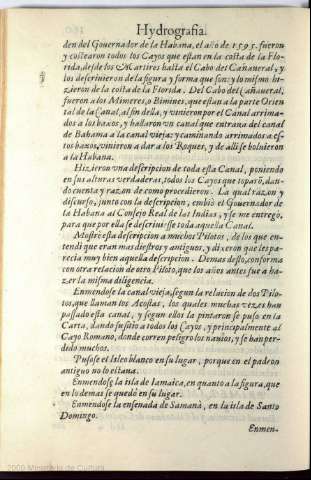 Hydrografia.
den del Gouernador de la Habana, el año de 1595. fueron
y costearon todos los Cayos que estan en la costa de la Flo-
rida, desde los Martires hasta el Cabo del Cañaueral, y
los descriuieron de la figura y forma que son: y lo mismo hi-
zieron de la costa de la Florida. Del Cabo del Cañaueral,
fueron a los Mimeres, o Bimines, que estan a la parte Orien
tal de la Canal, al fin della, y vinieron por el Canal arrima-
dos a los baxos, y hallaron vn canal que entraua del canal
de Bahama a la canal vieja: y caminando arrimados a es-
tos baxos, vinieron a dar a los Roques, y de alli se boluieron
a la Habana.
Hizieron vna descripcion de toda esta Canal, poniendo
en sus alturas verdaderas, todos los Cayos que toparõ, dan-
do cuenta y razon de como procedieron. La qual razon y
discurso, junto con la descripcion, embiò el Gouernador de
la Habana al Consejo Real de las Indias, y se me entregò,
para que por ella se descriuiesse toda aquella Canal.
Mostrè esta descripcion a muchos Pilotos, de los que en-
tendi que eran mas diestros y antiguos, y dixeron que les pa-
recia muy bien aquella descripcion. Demas desto, conforma
con otra relacion de otro Piloto, que los años antes fue a ha-
zer la misma diligencia.
Enmendose la canal vieja, segun la relacion de dos Pilo-
tos, que llaman los Acostas, los quales muchas vezes han
passado esta canal, y segun ellos la pintaron se puso en la
Carta, dando su sitio a todos los Cayos, y principalmente al
Cayo Romano, donde corren peligro los nauios, y se han per-
dido muchos.
Pusose el Isleo blanco en su lugar, porque en el padron
antiguo no lo estaua.
Enmendose la isla de Iamaica, en quanto a la figura, que
en lo demas se quedò en su lugar.
Enmendose la ensenada de Samanà, en la isla de Santo
Domingo.
Enmen-
2009 Ministerio de Cultura